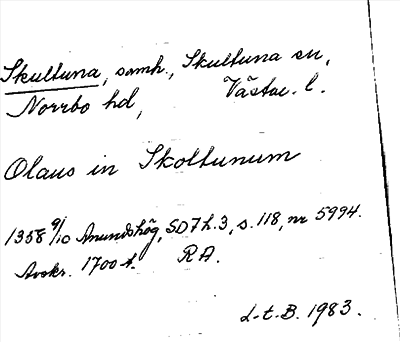 Skultuna, samh., Skultuna sn,
Norrbo hd, Västm. l.
Olaus in Skoltunum
1358 9/10 Anundshög, SD 7 h. 3, s. 118, nr 5994.
Avskr. 1700 t. RA.
L-t. B. 1983.